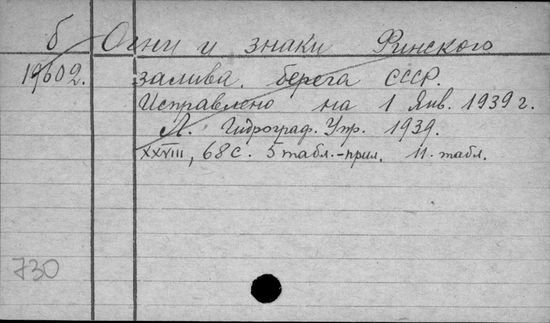 б Огни и знаки Финского
19602. залива. берега СССР.
Исправлено на 1 Янв. 1939 г.
Л. Гидрограф. Упр. 1939.
XXVIII, 68 с. 5 табл.-прил. 11. табл.
730